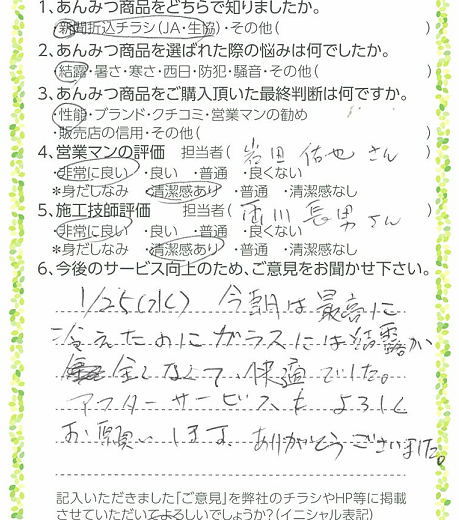 1、あんみつ商品をどちらで知りましたか。
・新聞折込チラシ(JA・生協)・その他( )
2、あんみつ商品を選ばれた際の悩みは何でしたか。
・結露・暑さ・寒さ・西日・防犯・騒音・その他( )
3、あんみつ商品をご購入頂いた最終判断は何ですか。
・性能・ブランド・クチコミ・営業マンの勧め
・販売店の信用・その他( )
4、営業マンの評価 担当者( 岩田佑也さん )
・非常に良い ・良い ・普通 ・良くない
*身だしなみ ・清潔感あり ・普通 ・清潔感なし
5、施工技師評価 担当者( 西川長男さん )
・非常に良い ・良い ・普通 ・良くない
*身だしなみ ・清潔感あり ・普通 ・清潔感なし
6、今後のサービス向上のため、ご意見をお聞かせ下さい。
1/25(水) 今朝は最高に
冷えたのにガラスには結露が
全くなくて、快適でした。
アフターサービスもよろしく
お願いします、ありがとうございました。
記入いただきました「ご意見」を弊社のチラシやHP等に掲載
させていただいてよろしいでしょうか?(イニシャル表記)